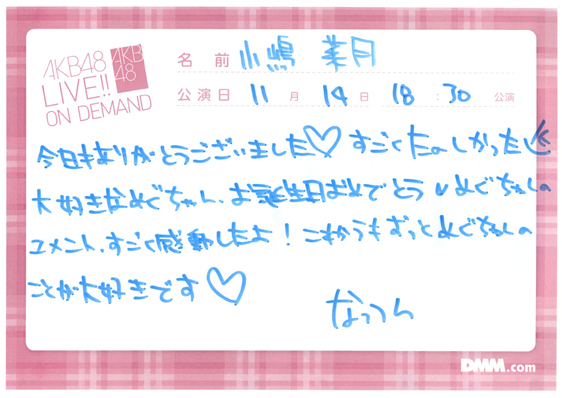 AKB48
LIVE!!
ON DEMAND
AKB
48
名前 小嶋 菜月
公演日 11月 14日 18:30 公演
今日もありがとうございました♡ すごくたのしかったし
大好きなめぐちゃん、お誕生日おめでとう めぐちゃんの
コメント、すごく感動したよ！これからもずっとめぐちゃんの
ことが大好きです♡
なっつん
DMM.com